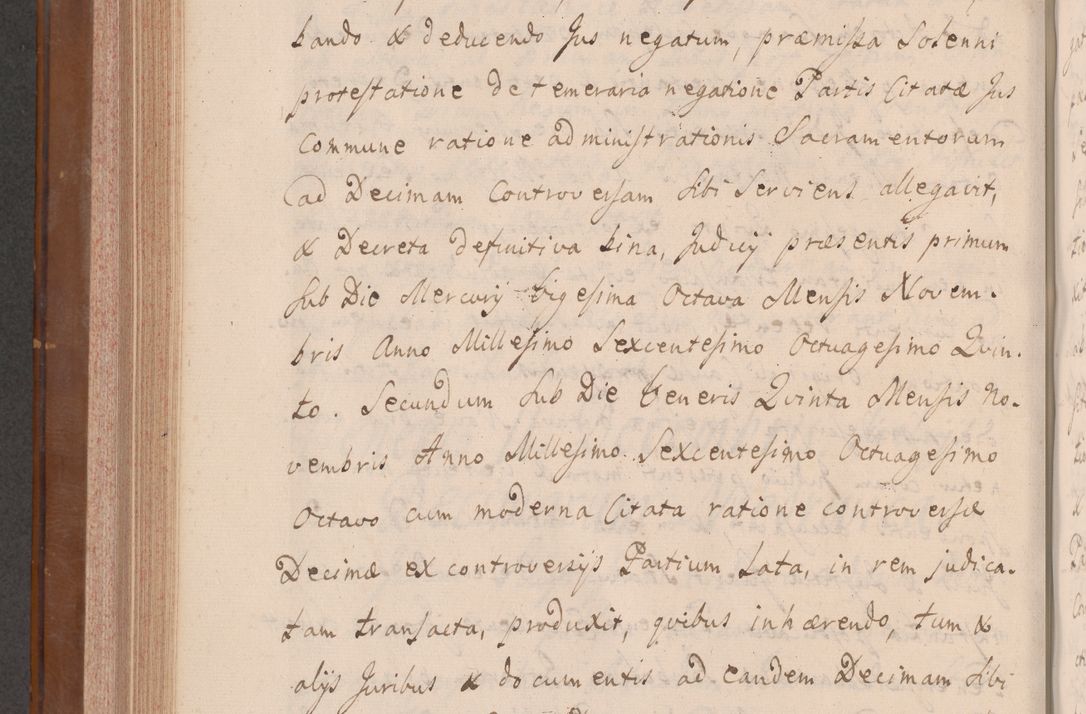 bando & deducendo Jus negatum, præmissa Solenni
protestatione de temeraria negatione Partis Citatæ Jus
Commune ratione administrationis Sacramentorum
ad Decimam Controversam sibi Serviens allegavit,
& Decreta definitiva bina, Judicÿ præsentis primum
sub Die Mercurÿ Vigesima Octava Mensis Novem.
bris Anno Millesimo Sexcentesimo Octuagesimo Qvin.
to. Secundum sub Die Veneris Qvinta Mensis No.
vembris Anno Millesimo Sexcentesimo Octuagesimo
Octavo cum moderna Citata ratione controversæ
Decimæ ex controversÿs Partium Lata, in rem judica.
tam transacta, produxit, qvibus inhærendo, tum &
alÿs Juribus & documentis ad eandem Decimam sibi